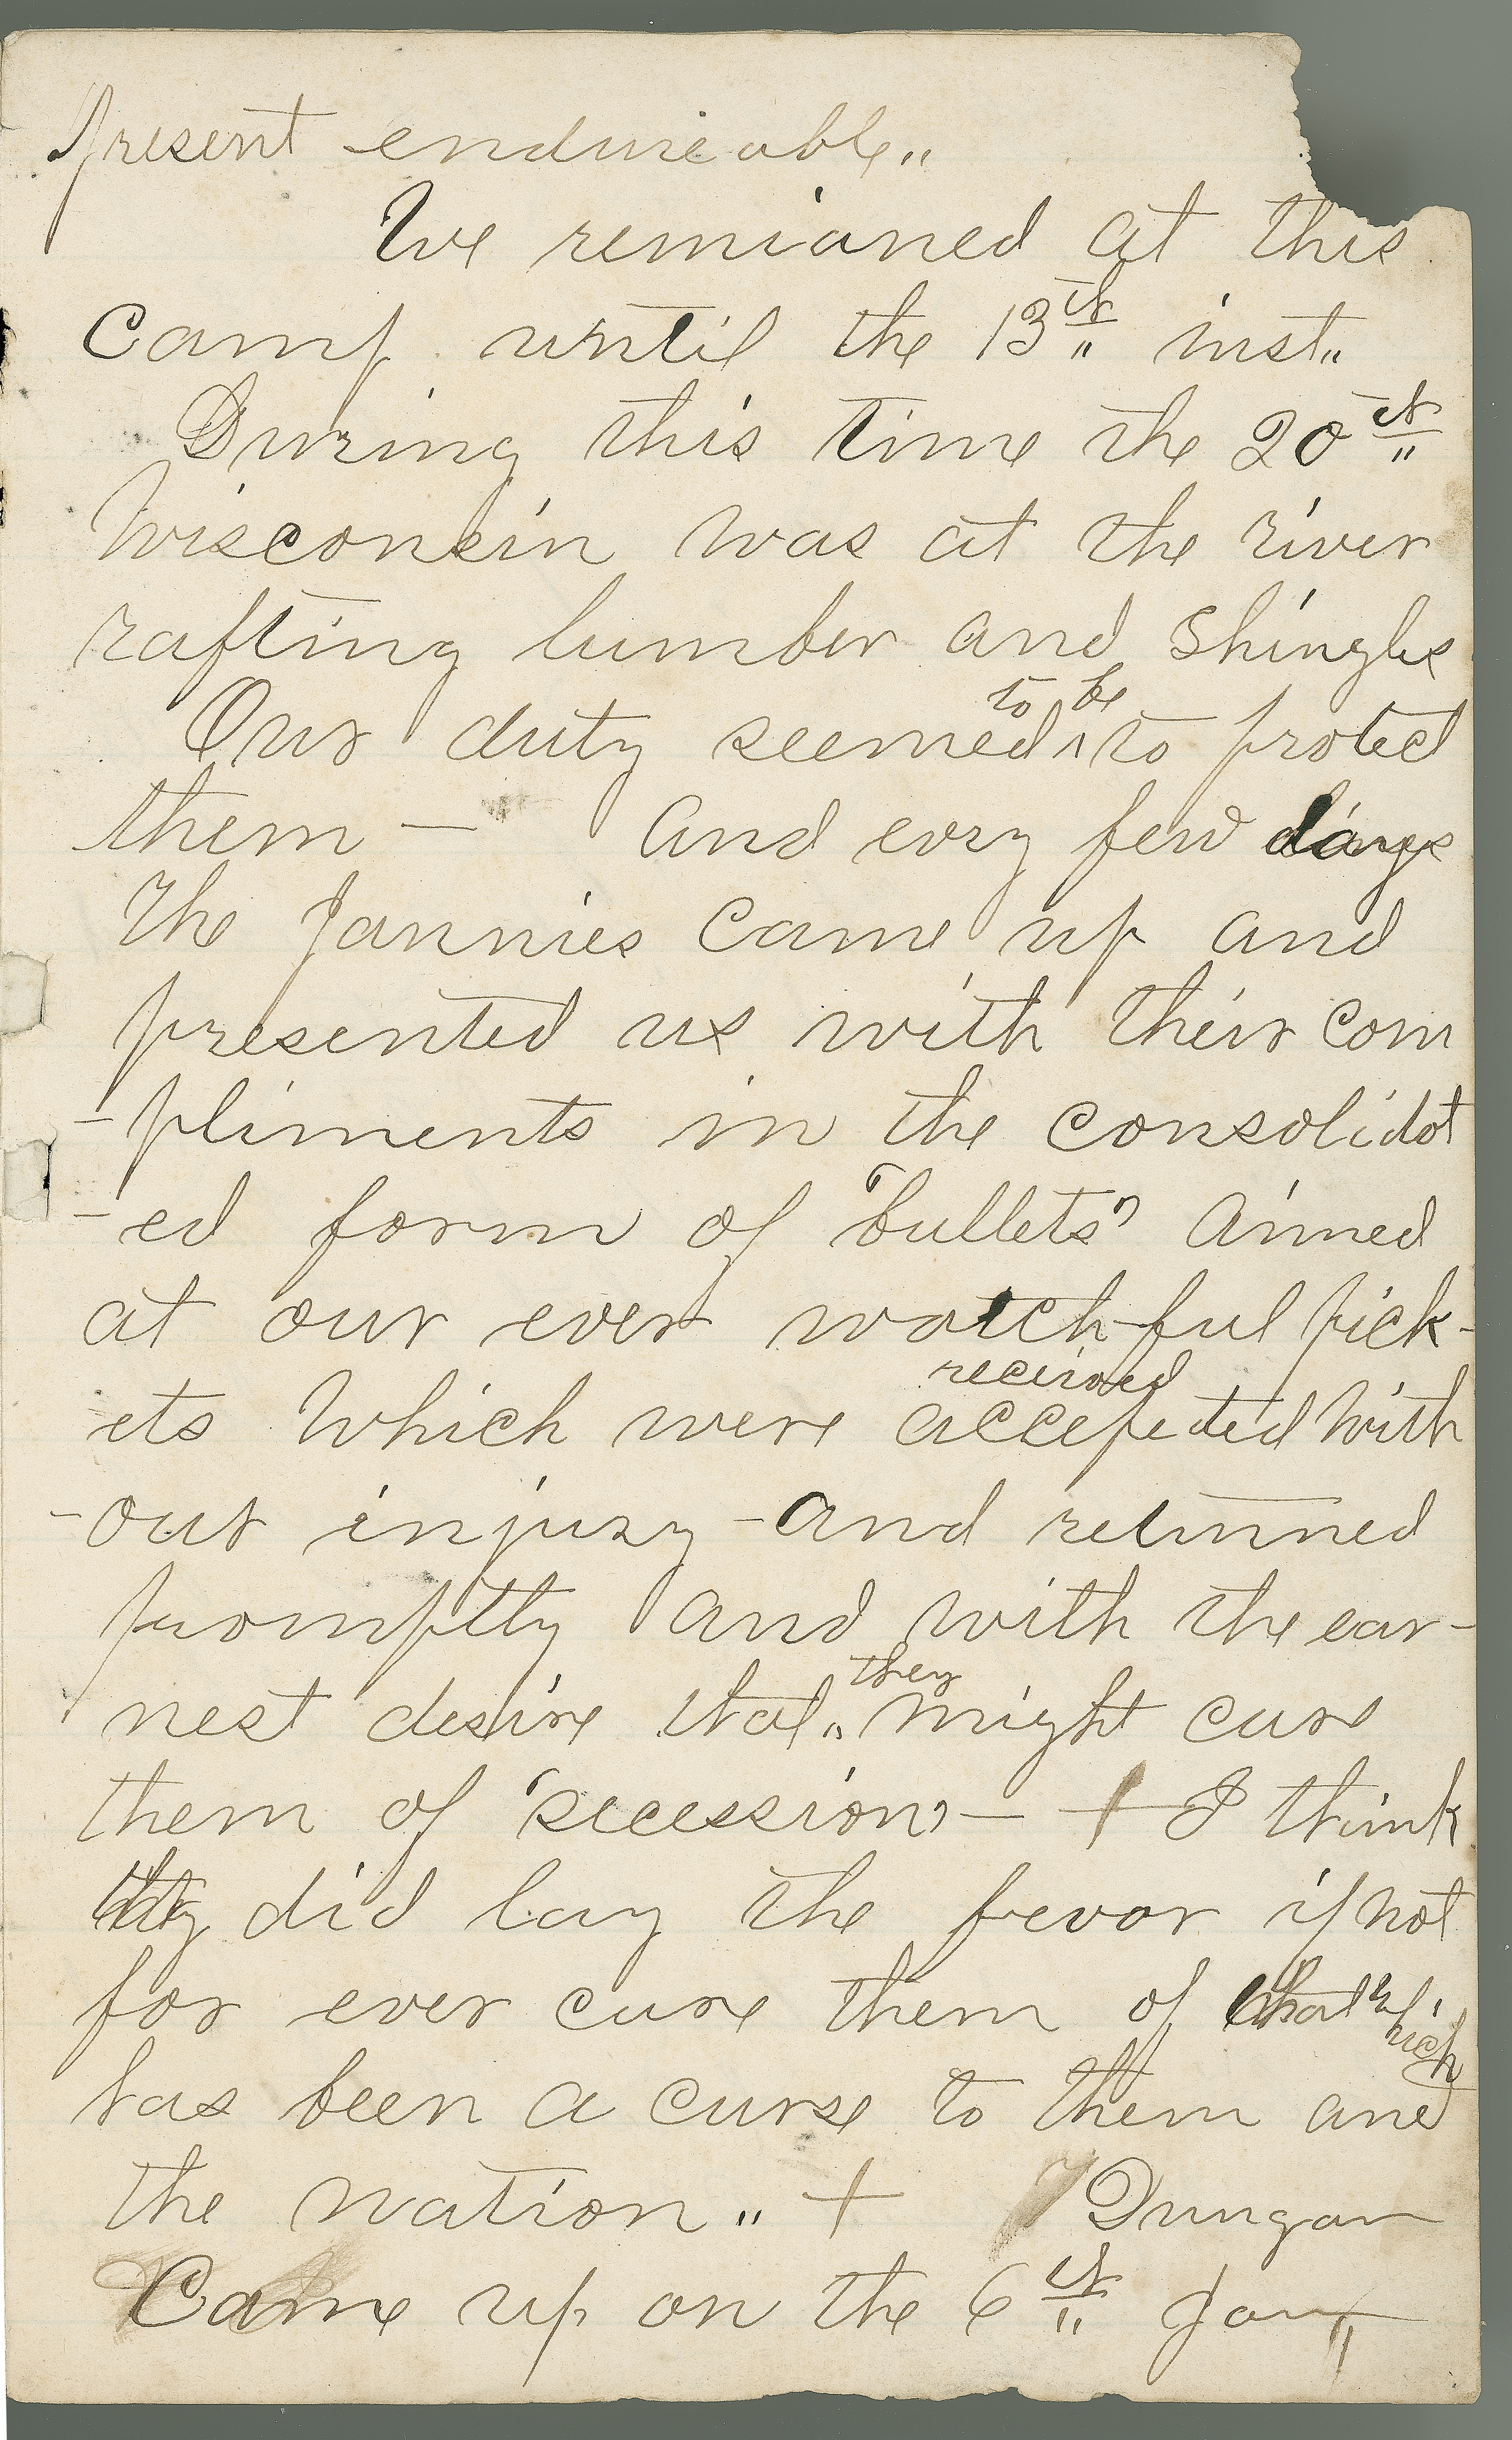 present endureable"
We remianed at this
Camp until the 13th" inst"
During this time the 20th"
Wisconsin was at the river
rafting lumber and Shingles
to be
Our duty seemed ^ to protect
them — And evry few days
The Jannies Came up and
presented us with their Com
-pliments in the consolidat
-ed form of "bullets" Aimed
at our ever watch-ful pick-
received
ets Which were accepeted With
-out injury - And returned
promptly And with the ear-
they
nest desire that " might cure
them of "secession" — + I think
they did lay the fevor if not
for ever cure them of that which
has been a curse to them and
the nation " + Dungan
Came up on the 6th" Jan"